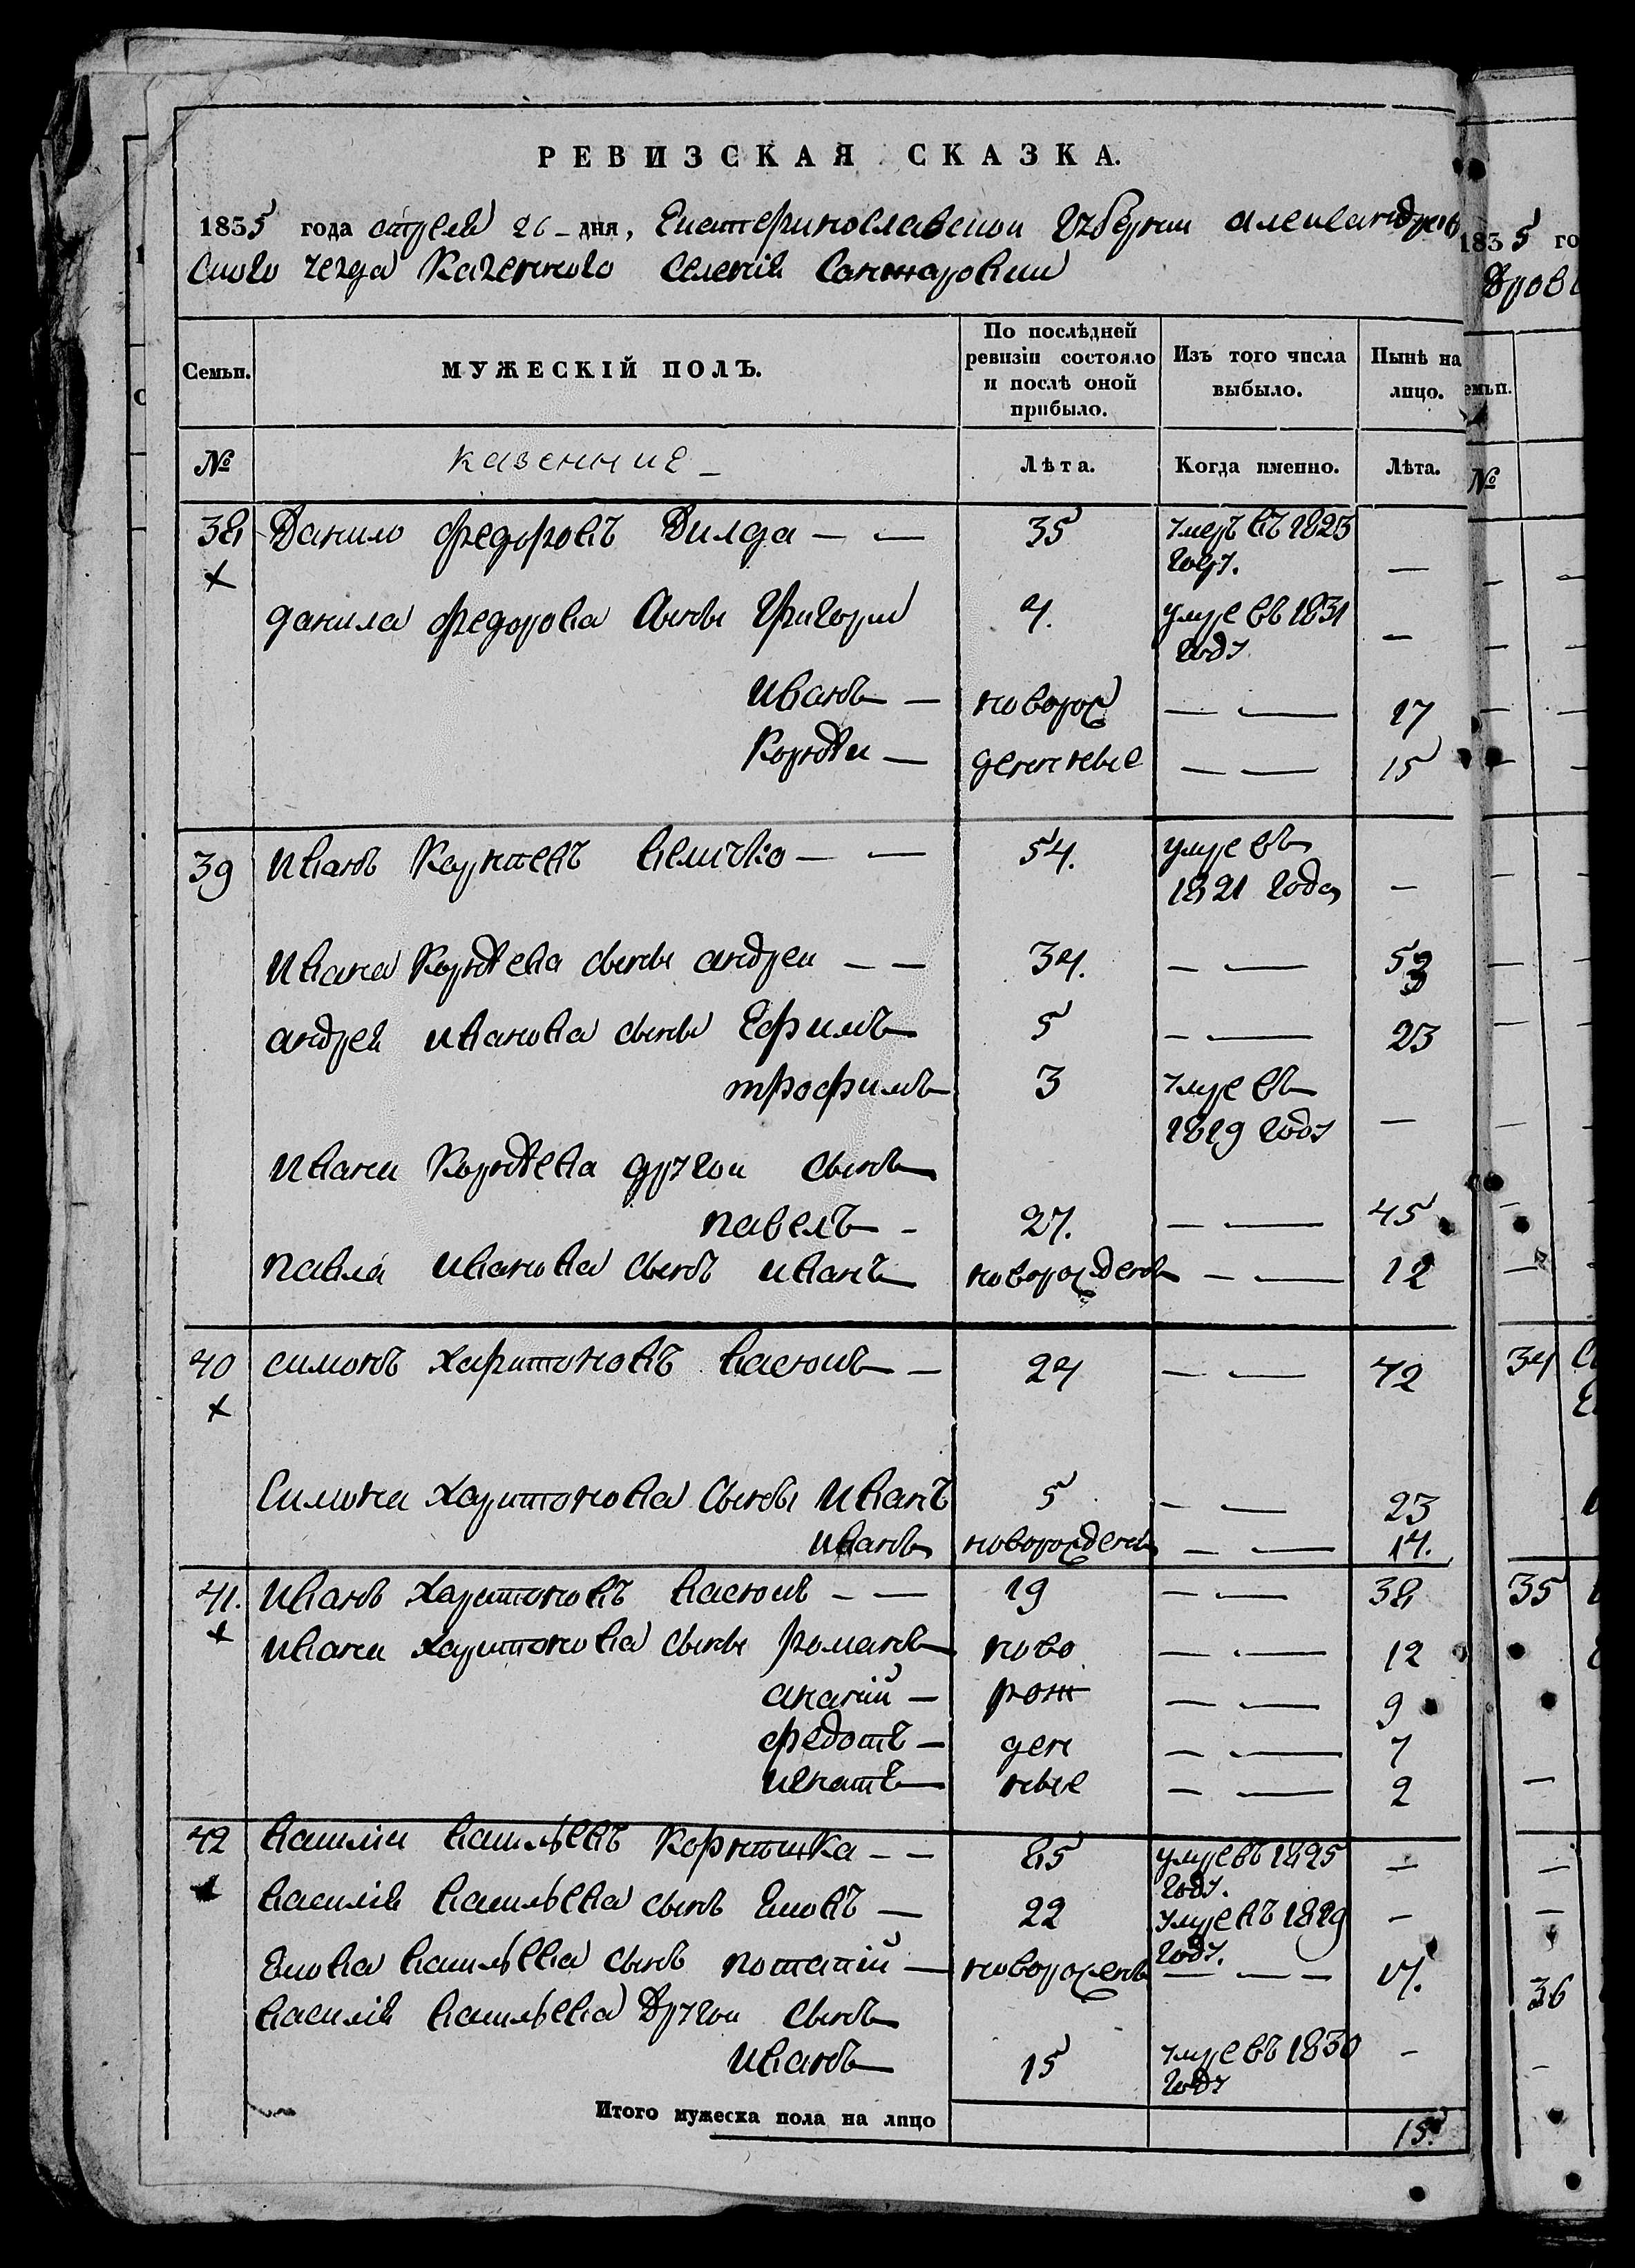 РЕВИЗСКАЯ СКАЗКА.
1835 года апреля 26 - дня, Екатеринославской Губернии александров
ского уезда Казенного Селения Санжаровки
Семьи.
МУЖЕСКІЙ ПОЛЪ.
По послѣдней ревизіи состояло и послѣ оной прибыло.
Изъ того числа выбыло.
Нынѣ на лицо.
№
казенние -
Лѣта.
Когда именно.
Лѣта.
38 Данило федоровъ Дилда — — 35 умеръ въ 1823 —
х году.
данила федорова сынъ Григорий 4. умре въ 1831 —
году
иванъ — новорож — — 17
Корнѣи — деннные — — 15
39 иванъ Корнѣевъ величко — — 54. умре въ
1821 года —
ивана Корнѣева сынъ андреи — — 34. — — 53
андрея иванова сынъ Ефимъ 5 — — 23
трофимъ 3 умре въ
1829 году —
ивана Корнѣева другои сынъ
павелъ - 27. — — 45
павла иванова сынъ иванъ новорожденъ — — 12
40 симонъ харитоновъ васюкъ — 24 — — 42
х
Симона харитонова сынъ иванъ 5 — — 23
иванъ новорожденъ — — 14.
41. иванъ харитоновъ васюкъ — — 19 — — 38
х ивана харитонова сынъ романъ ново — — 12
ананій — рож — — 9
федотъ — ден — — 7
игнатъ ные — — 2
42 василіи васильевъ Корнешка — — 85 умре въ 1825 —
году.
василія васильева сынъ Яковъ — 22 умре въ 1829 —
году.
Якова васильева сынъ потапій — новорожденъ — — — 17.
василія васильева Другои сынъ
иванъ 15 умре въ 1830 —
году
Итого мужеска пола на лицо 15.
183 5 го
дров
емьи.
№
34
35
36